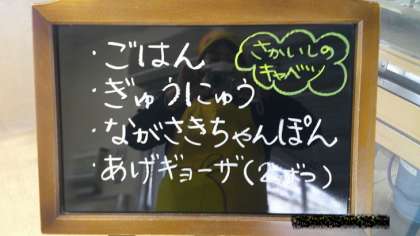 ・ごはん
・ぎゅうにゅう
・ながさきちゃんぽん
・あげギョーザ(2ずつ)
さかいしの
キャベツ